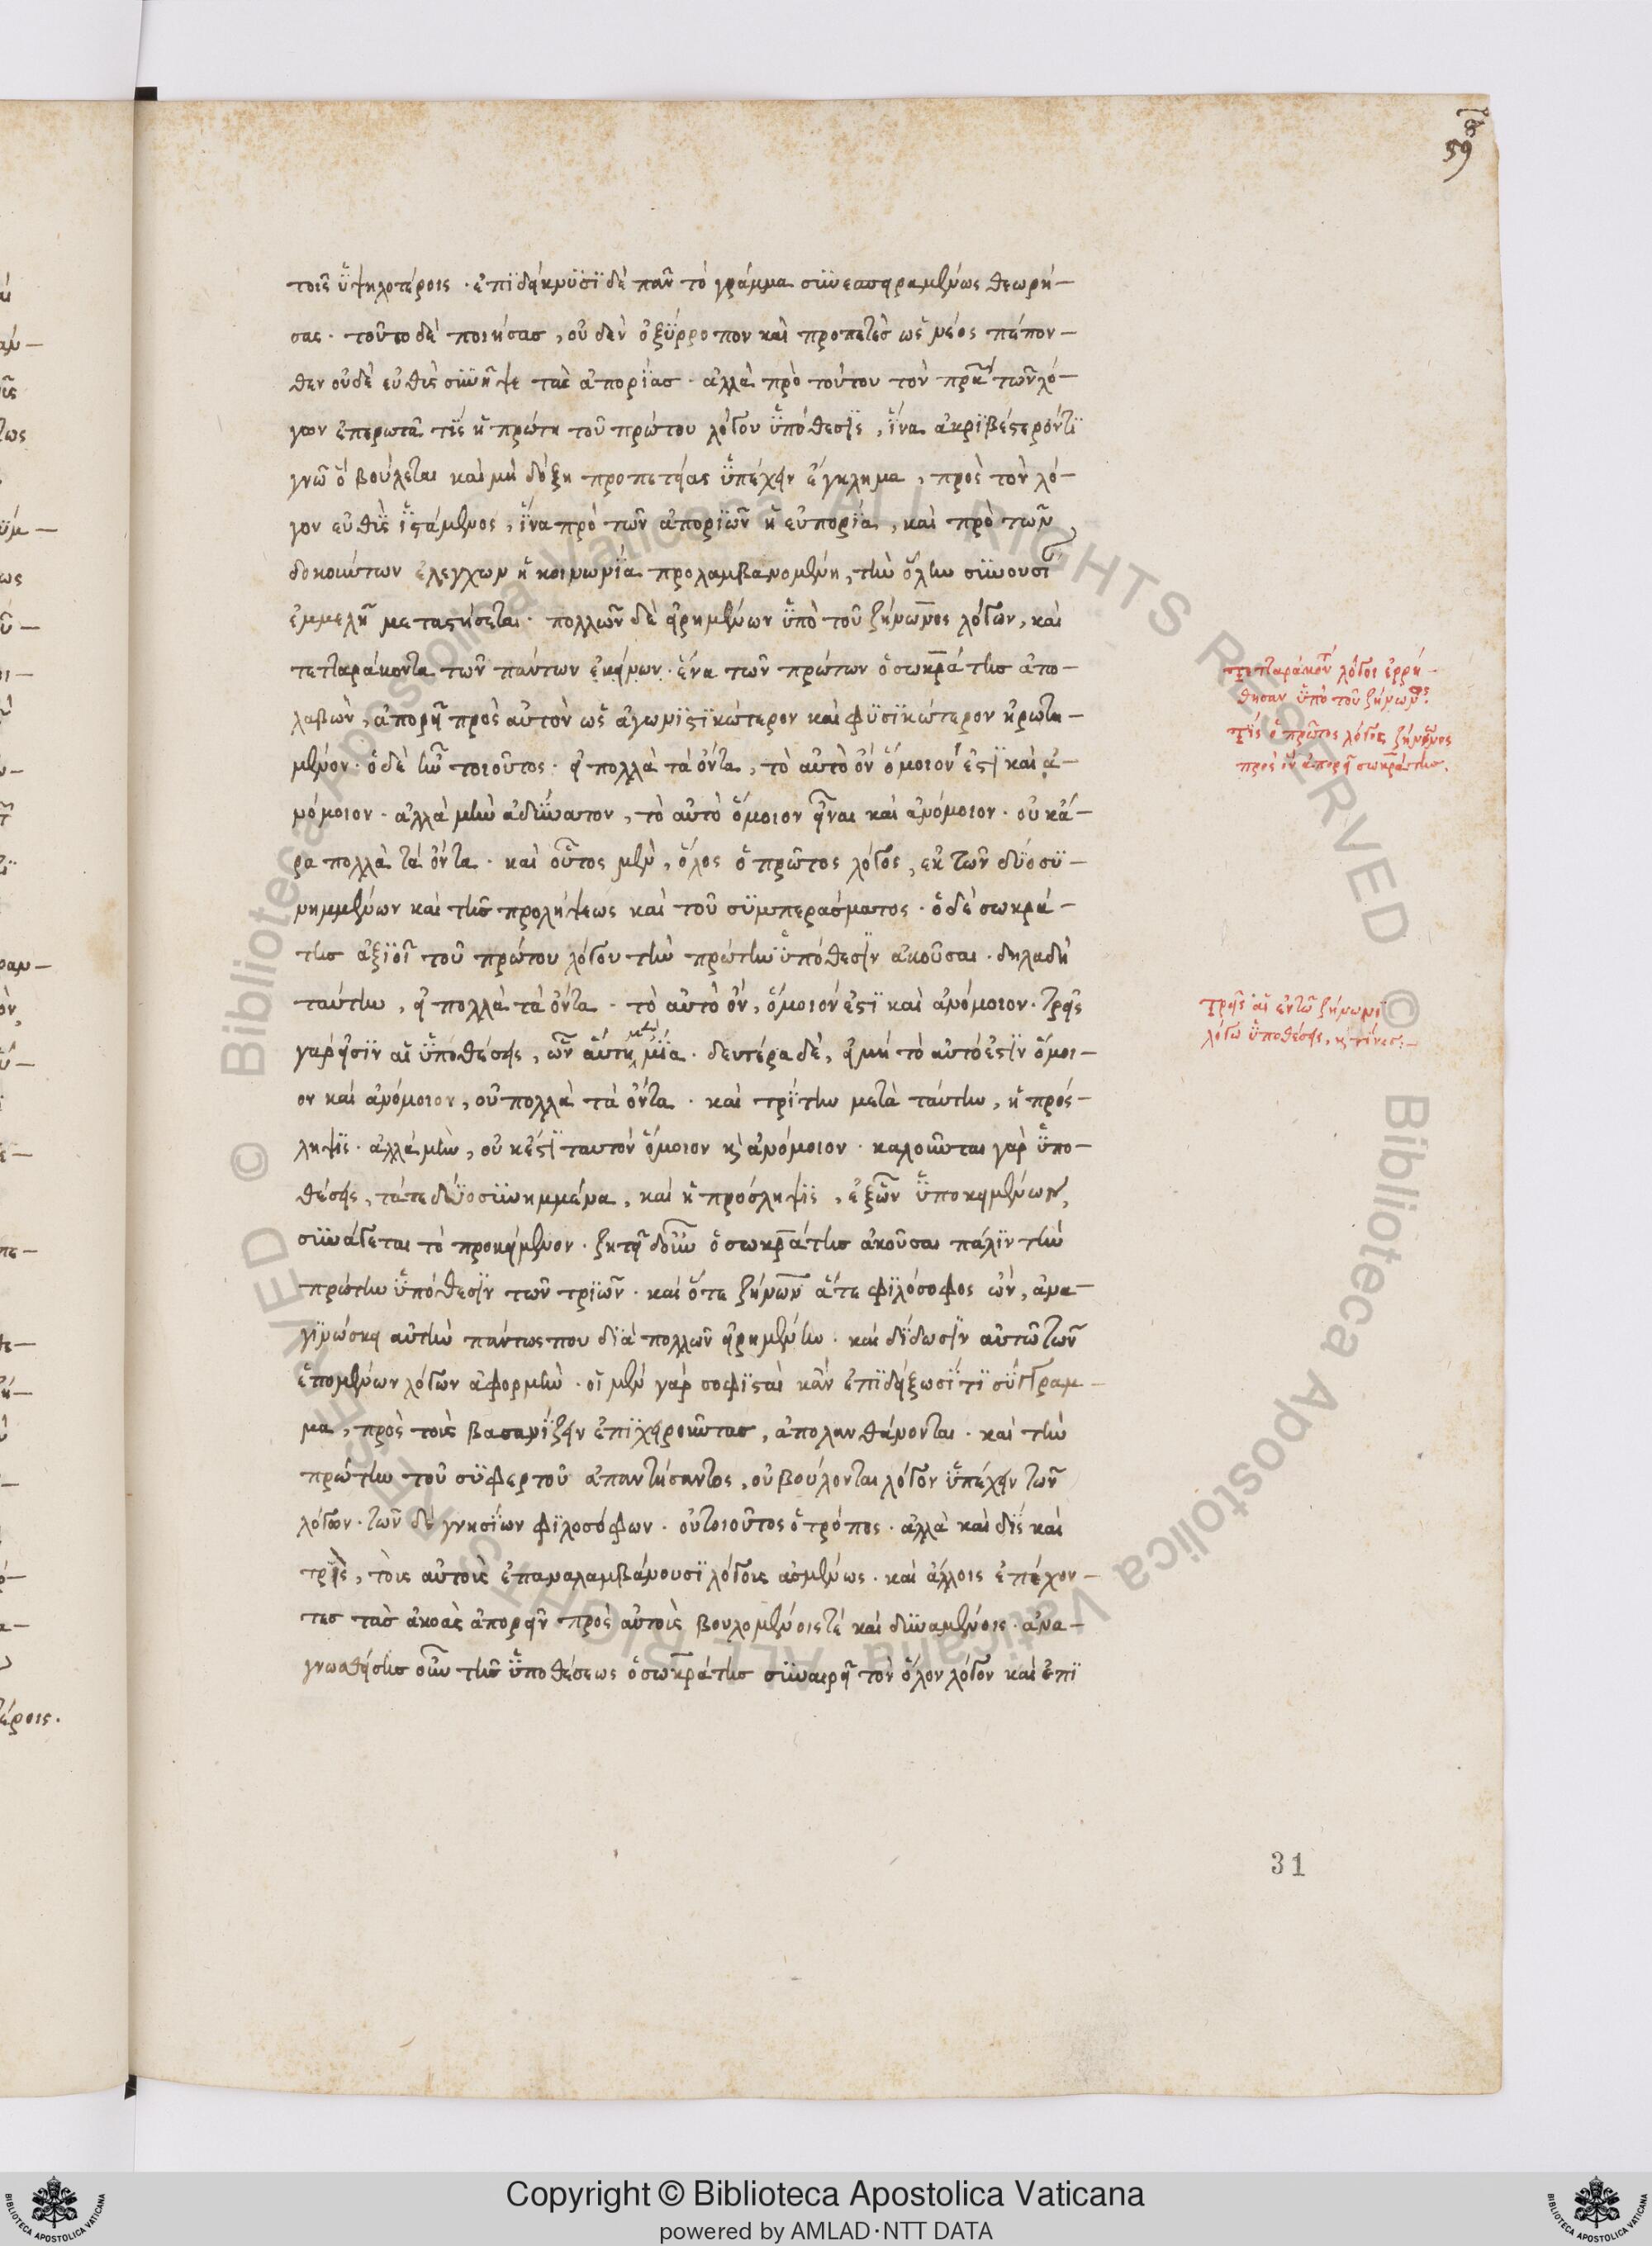 59
τοῖς ὑψηλοτέροις · ἐπιδείκνυσι δὲ πᾶν τὸ γράμμα συνεσπραμμένως θεωρή-
σας · τοῦτο δὲ ποιήσας, οὐδὲν ὀξύρροπον καὶ προπετὲς ὡς νέος πέπον-
θεν οὐδὲ εὐθὺς συνῆψε τὰς ἀπορίας · ἀλλὰ πρὸ τούτου τὸν πρα τῶν λό-
γων ἐπερωτᾶ τίς ἡ πρώτη τοῦ πρώτου λόγου ὑπόθεσις, ἵνα ἀκριβέστερόν τι
γνῶ ὃ βούλεται καὶ μὴ δόξη προπετείας ὑπέχειν ἔγκλημα, πρὸς τὸν λό-
γον εὐθὺς ἱστάμενος, ἵνα πρὸ τῶν ἀποριῶν ἡ εὐπορία, καὶ πρὸ τῶν
δοκούντων ἐλέγχων ἡ κοινωνία προλαμβανομένη, τὴν ὅλην συνουσί
ἐμμελῆ μεταστήσεται · πολλῶν δὲ εἰρημένων ὑπὸ τοῦ ζήνωνος λόγων, καὶ
τετταράκοντα τῶν πάντων ἐκείνων · ἕνα τῶν πρώτων ὁ σωκράτης ἀπο-
λαβὼν, ἀπορεῖ πρὸς αὐτὸν ὡς ἀγωνιστικώτερον καὶ φυσικώτερον ἠρωτη-
μένον · ὁ δὲ ἦν τοιοῦτος · εἰ πολλὰ τὰ ὄντα, τὸ αὐτὸ ὂν ὅμοιον ἐστὶ καὶ ἀ-
νόμοιον · ἀλλὰ μὴν ἀδύνατον, τὸ αὐτὸ ὅμοιον εἶναι καὶ ἀνόμοιον · οὐκ ἄ-
ρα πολλὰ τὰ ὄντα · καὶ οὗτος μὲν, ὅλος ὁ πρῶτος λόγος, ἐκ τῶν δύο συ-
νημμένων καὶ τῆς προλήψεως καὶ τοῦ συμπεράσματος · ὁ δὲ σωκρά-
της ἀξιοῖ τοῦ πρώτου λόγου τὴν πρώτην ὑπόθεσιν ἀκοῦσαι · δηλαδὴ
ταύτην, εἰ πολλὰ τὰ ὄντα · τὸ αὐτὸ ὂν, ὅμοιόν ἐστι καὶ ἀνόμοιον · τρεῖς
γάρ εἰσιν αἱ ὑποθέσεις, ὧν αὕτη μὲν μία · δευτέρα δὲ, εἰ μὴ τὸ αὐτό ἐστιν ὅμοι-
ον καὶ ἀνόμοιον, οὐ πολλὰ τὰ ὄντα · καὶ τρίτην μετὰ ταύτην, ἡ πρόσ-
ληψις · ἀλλὰ μὴν, οὐκ ἔστι ταυτὸν ὅμοιον καὶ ἀνόμοιον · καλοῦνται γὰρ ὑπο-
θέσεις, τά τε δύο συνημμένα, καὶ ἡ πρόσληψις, ἐξ ὧν ὑποκειμένων,
συνάγεται τὸ προκείμενον · ζητεῖ δ οὖν ὁ σωκράτης ἀκοῦσαι πάλιν τὴν
πρώτην ὑπόθεσιν τῶν τριῶν · καὶ ὅτε ζήνων ἅτε φιλόσοφος ὢν, ἀνα-
γινώσκει αὐτὴν πάντως που διὰ πολλῶν εἰρημένην · καὶ δίδωσιν αὐτῶ τῶν
ἑπομένων λόγων ἀφορμὴν · οἱ μὲν γὰρ σοφισταὶ κἂν ἐπιδείξωσί τι σύγγραμ-
μα, πρὸς τοὺς βασανίζειν ἐπιχειροῦντας, ἀπολανθάνονται · καὶ τὴν
πρώτην τοῦ συφερτοῦ ἀπαντήσαντος, οὐ βούλονται λόγον ὑπέχειν τῶν
λόγων · τῶν δὲ γνησίων φιλοσόφων · οὐ τοιοῦτος ὁ τρόπος · ἀλλὰ καὶ δὶς καὶ
τρὶς, τοὺς αὐτοὺς ἐπαναλαμβάνουσι λόγους ἀσμένως · καὶ ἄλλοις ἐπέχον-
τες τὰς ἀκοὰς ἀπορεῖν πρὸς αὐτοὺς βουλομένοις τέ καὶ δυναμένοις · ἀνα-
γνωσθείσης οὖν τῆς ὑποθέσεως ὁ σωκράτης συναιρεῖ τὸν ὅλον λόγον καὶ ἐπὶ
τετταράκοντ λόγοι ἐρρή-
θησαν ὑπὸ τοῦ ζήνωνος
τίς ὁ πρῶτος λόγος ζήνωνος
πρὸς ὃν ἀπορεῖ σωκράτης.
τρεῖς αἱ ἐν τῶ ζήνωνι
λόγω ὑποθέσεις, καὶ τίνες :-
31
Copyright © Biblioteca Apostolica Vaticana
powered by AMLAD·NTT DATA